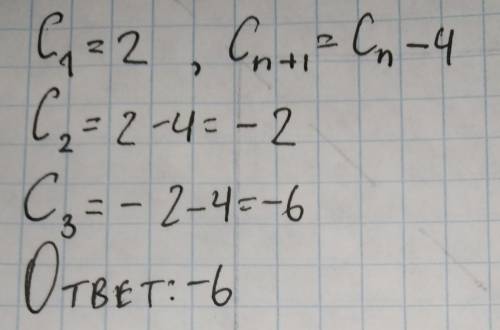 C₁ = 2 , Cₙ₊₁ = Cₙ - 4
C₂ = 2 - 4 = - 2
C₃ = - 2 - 4 = -6
Ответ: -6